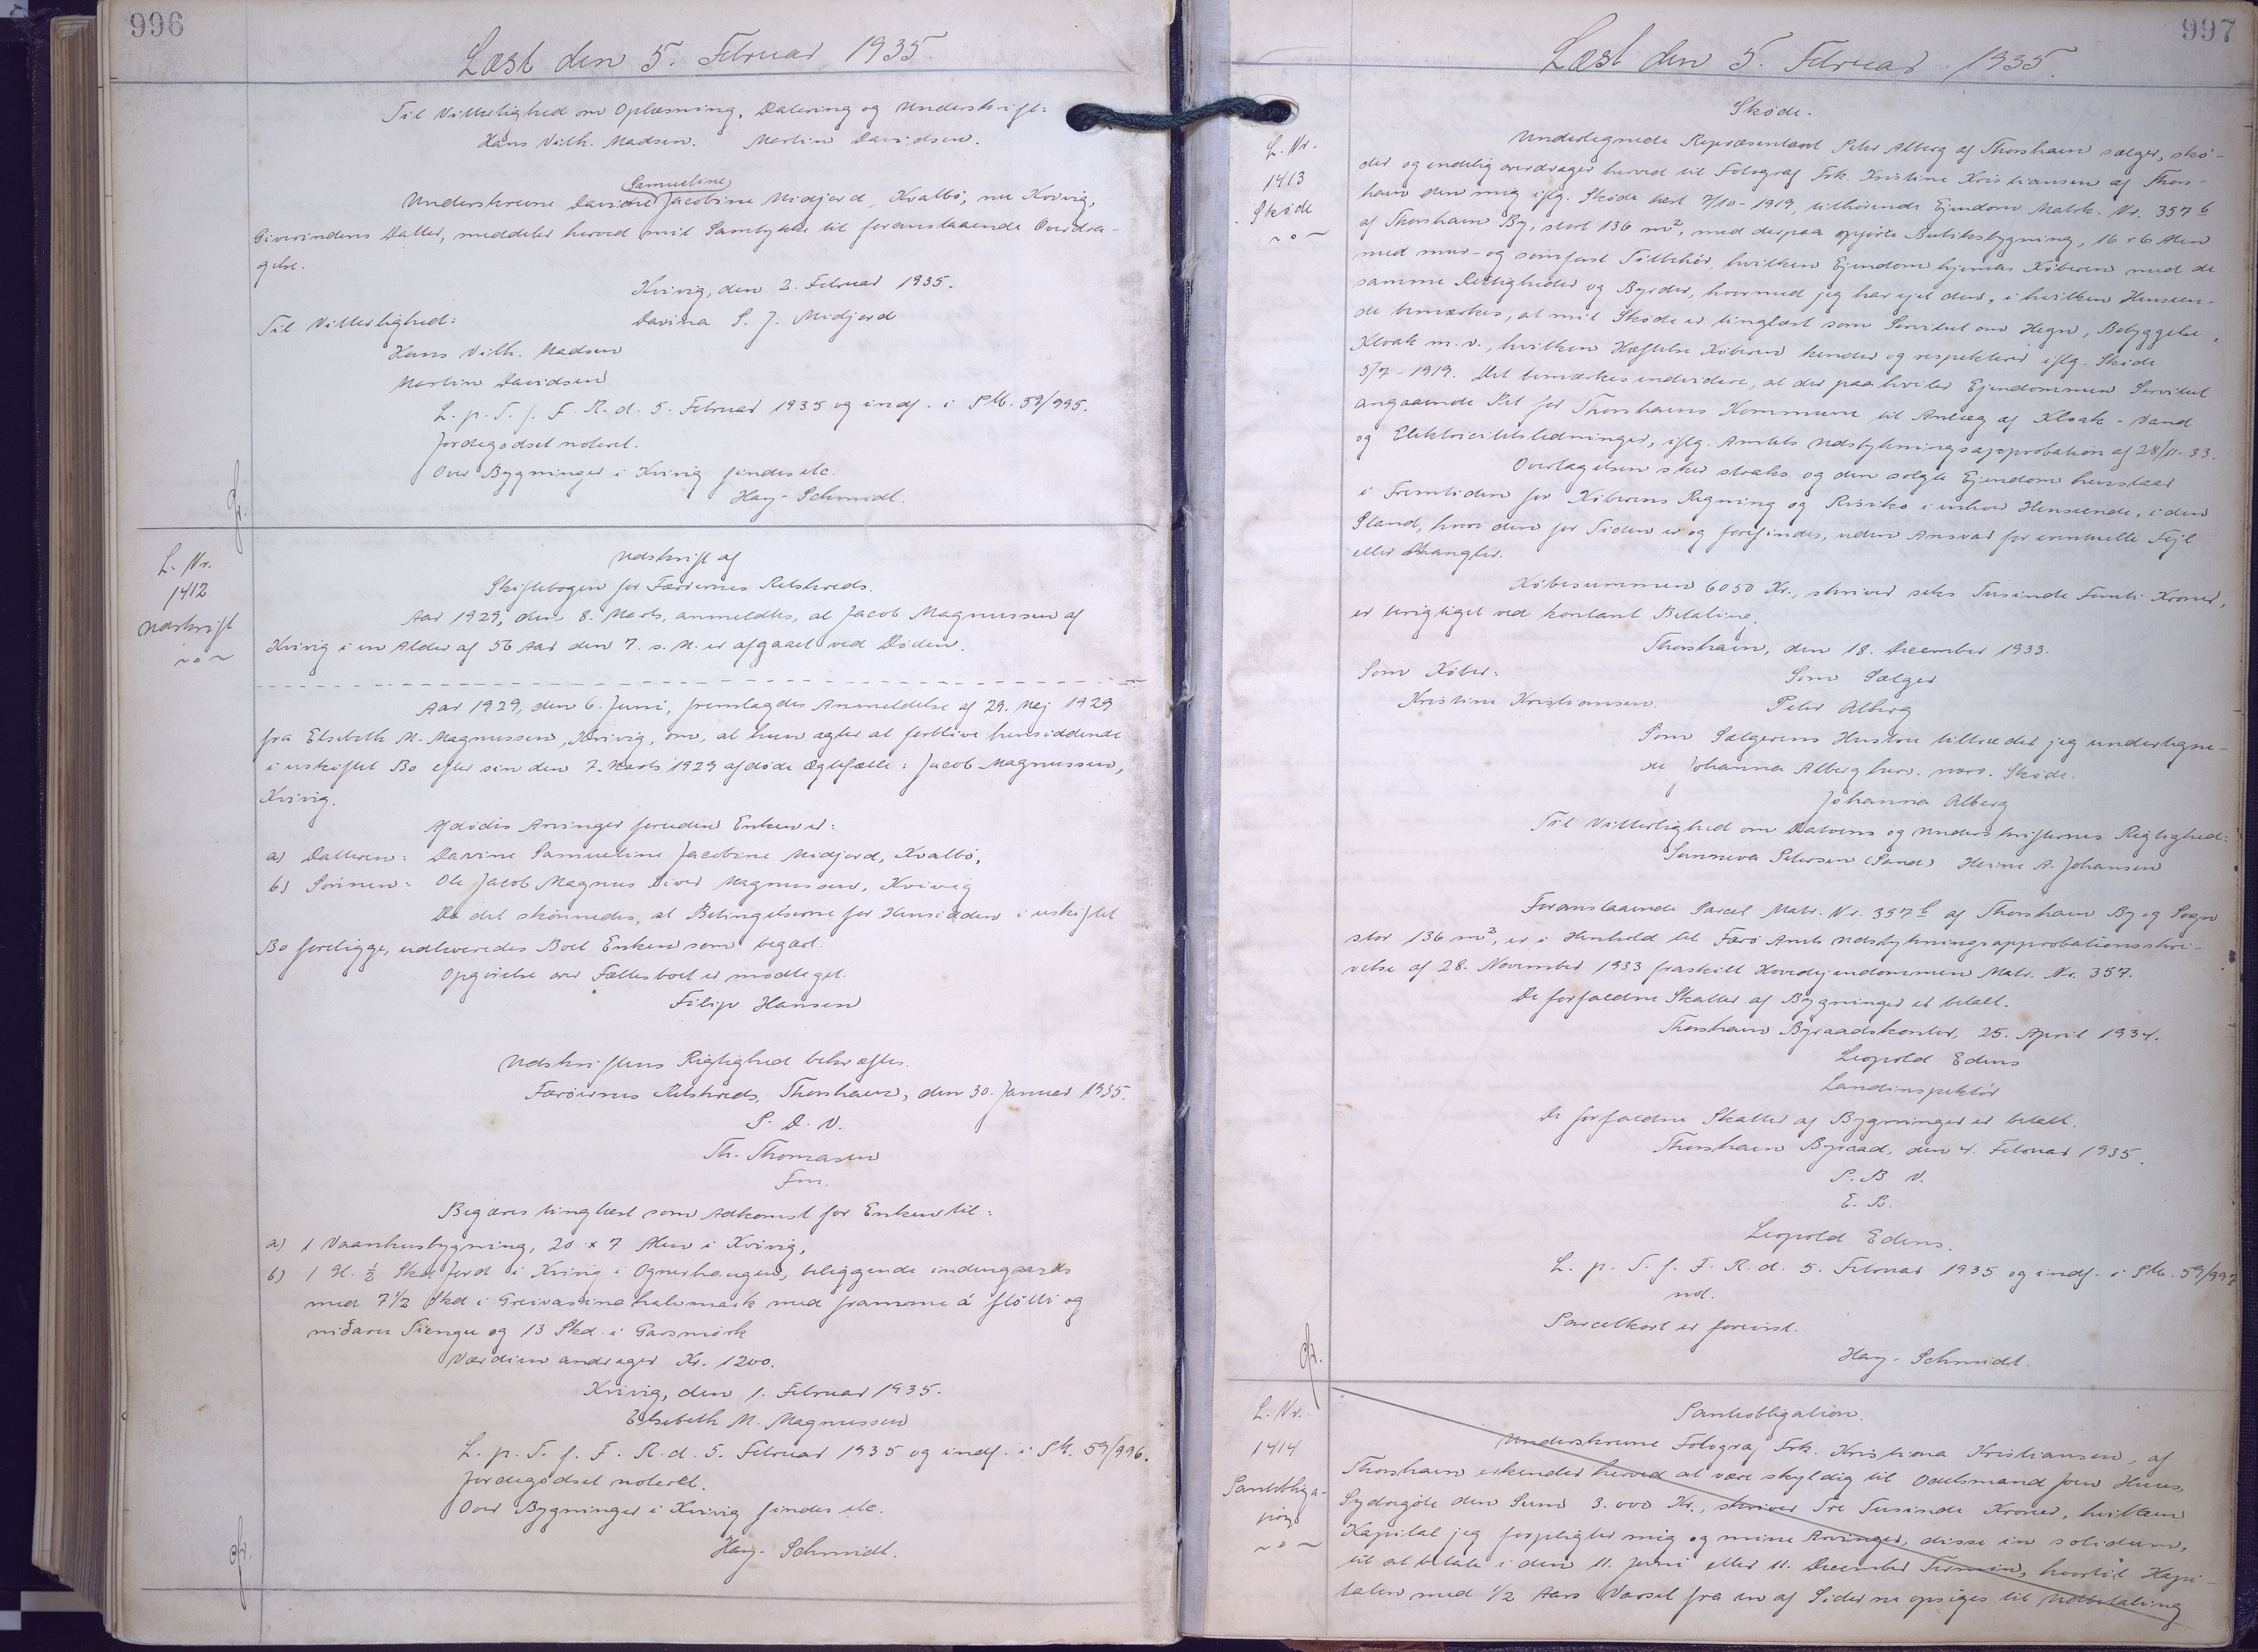 996
Læst den 5. Februar 1935.
Til Vitterlighed om Oplæsning, Datering og Underskrift:
Hans Vilh. Madsen. Martin Davidsen.
Samueline
Underskrevne Davine Jacobine Midjord, Kvalbö, nu Kvivig,
Giverindens Datter, meddeler herved mit Samtykke til foranstaaende Overdra-
gelse.
Kvivig, den 2. Februar 1935.
Til Vitterlighed: Davina S. J. Midjord
Hans Vilh. Madsen
Martin Davidsen
L. p. T. f. F. R. d. 5. Februar 1935 og indf. i SM. 59/995.
Jordegodset noteret.
Over Bygninger i Kvivig findes etc.
Hay-Schmidt.
L. Nr.
1412
Udskrift
~o~
Udskrift af
Skiftebogen for Færöernes Retskreds.
Aar 1929, den 8. Marts, anmeldtes, at Jacob Magnussen af
Kvivig i en Alder af 56 Aar den 7. s. M. er afgaaet ved Döden.
Aar 1929, den 6. Juni, fremlagdes Anmeldelse af 29. Maj 1929
fra Elsebeth M. Magnussen, Kvivig, om, at hun agter at forblive hensiddende
i uskiftet Bo efter sin den 7. Marts 1929 afdöde Ægtefælle: Jacob Magnussen,
Kvivig.
Afdödes Arvinger foruden Enken er:
a) Datteren: Davine Samueline Jacobine Midjord, Kvalbö,
b) Sönnen: Ole Jacob Magnus Magnussen, Kvivig
Da det skönnedes, at Betingelserne for Hensidden i uskiftet
Bo foreligge, udleveredes Boet Enken som begært.
Opgörelse over Fællesboet er modtaget.
Filip Hansen
Udskriftens Rigtighed bekræftes.
Færöernes Retskreds, Thorshavn, den 30. Januar 1935.
P. D. V.
Th. Thomasen
Fm.
Begæres tinglæst som Adkomst for Enken til:
a) 1 Vaanhusbygning, 20 x 7 Alen i Kvivig,
b) 1 Gl. ½ Skd Jord i Kvivig i Ognerhaugen, beliggende indengaards
med 7 1/2 Skd i Greivastina halvmark med framme á flötti og
niðaru Tiengu og 13 Skd. i Garsmörk
Værdien andrager Kr. 1200.
Kvivig, den 1. Februar 1935.
Elsebeth M. Magnussen
L. p. T. f. F. R. d. 5. Februar 1935 og indf. i SM. 59/996.
Jordegodset noteret.
Over Bygninger i Kvivig findes etc.
Hay-Schmidt.
997
Læst den 5. Februar 1935.
L. Nr.
1413
Sköde
~o~
Sköde.
Undertegnede Repræsentant Peter Alberg af Thorshavn sælger, skö-
der og endelig overdrager herved til Fotograf Frk. Kristine Kristiansen af Thors-
havn den mig iflg. Sköde læst 7/10-1919, tilhörende Ejendom Matr. Nr. 357 b
af Thorshavn By, stort 136 m², med derpaa opförte Butiksbygning, 16 x 6 Alen
med mur- og sömfast Tilbehör, hvilken Ejendom hjemles Köberen med de
samme Rettigheder og Byrder, hvormed jeg har ejet den, i hvilken Hensen-
de bemærkes, at mit Sköde er tinglæst som Servitut om Hegn, Bebyggelse,
Kloak m. v., hvilken Hæftelse Köberen kender og respekterer iflg. Sköde
3/7-1919. Det bemærkes endvidere, at der paa hviler Ejendommen Servitut
angaaende Ret for Thorshavns Kommune til Anlæg af Kloak-Vand
og Elektricitetsledninger, iflg. Amtets Udstykningsapprobation af 28/11-33.
Overtagelsen sker straks og den solgte Ejendom henstaar
i Fremtiden for Köberens Regning og Risiko i enhver Henseende, i den
Stand, hvori den for Tiden er og forefindes, uden Ansvar for eventuelle Fejl
eller Mangler.
Köbesummen 6050 Kr., skriver seks Tusinde Femti Kroner,
er berigtiget ved kontant Betaling.
Thorshavn, den 18. December 1933.
Som Köber: Som Sælger
Kristine Kristiansen. Peter Alberg
Som Sælgerens Hustru tiltræder jeg undertegne-
de Johanna Alberg herv. nærv. Sköde.
Johanna Alberg
Til Vitterlighed om Datoens og Underskrifternes Rigtighed:
Sunneva Petersen (Sand) Heine A. Johansen
Foranstaaende Parcel Matr. Nr. 357 b af Thorshavn By og Sogn
stor 136 m², er i Henhold til Færö Amts Udstykningsapprobationsskri-
velse af 28. November 1933 fraskilt Hovedejendommen Matr. Nr. 357.
De forfaldne Skatter af Bygninger er betalt.
Thorshavn Byraadskontor, 25. April 1934.
Leopold Edens
Landinspektör
De forfaldne Skatter af Bygninger er betalt.
Thorshavn Byraad, den 4. Februar 1935.
P. B. V.
E. B.
Leopold Edens.
L. p. T. f. F. R. d. 5. Februar 1935 og indf. i SM. 59/997
not.
Parcelkort er forevist.
Hay-Schmidt.
L. Nr.
1414
Pantobliga-
tion
~o~
Pantobligation.
Underskrevne Fotograf Frk. Kristiana Kristiansen, af
Thorshavn erkender herved at være skyldig til Odelsmand Joen Huus,
Sydregöte den Sum 3.000 Kr., skriver Tre Tusinde Kroner, hvilken
Kapital jeg forpligter mig og mine Arvinger, disse in solidum,
til at betale i den 11. Juni eller 11. December Termin, hvortil Kapi-
talen med 1/2 Aars Varsel fra en af Siderne opsiges til Udbetaling